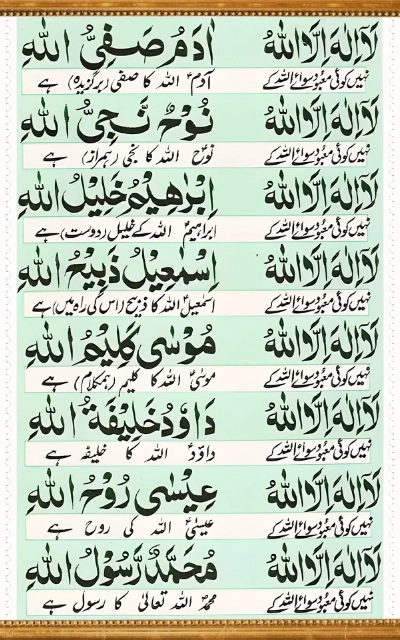 لَآ اِلٰهَ اِلَّا اللّٰهُ اٰدَمُ صَفِیُّ اللّٰهِ
نہیں کوئی معبود سوائے اللہ کے آدمؑ اللہ کا صفی (برگزیدہ) ہے
لَآ اِلٰهَ اِلَّا اللّٰهُ نُوْحٌ نَّجِیُّ اللّٰهِ
نہیں کوئی معبود سوائے اللہ کے نوحؑ اللہ کا نجی (ہمراز) ہے
لَآ اِلٰهَ اِلَّا اللّٰهُ اِبْرٰهِیْمُ خَلِیْلُ اللّٰهِ
نہیں کوئی معبود سوائے اللہ کے ابراہیمؑ اللہ کے خلیل (دوست) ہے
لَآ اِلٰهَ اِلَّا اللّٰهُ اِسْمٰعِیْلُ ذَبِیْحُ اللّٰهِ
نہیں کوئی معبود سوائے اللہ کے اسمٰعیلؑ اللہ کا ذبیح (اس کی راہ میں) ہے
لَآ اِلٰهَ اِلَّا اللّٰهُ مُوْسٰی كَلِیْمُ اللّٰهِ
نہیں کوئی معبود سوائے اللہ کے موسٰیؑ اللہ کا کلیم (ہمکلام) ہے
لَآ اِلٰهَ اِلَّا اللّٰهُ دَاوٗدُ خَلِیْفَةُ اللّٰهِ
نہیں کوئی معبود سوائے اللہ کے داؤدؑ اللہ کا خلیفہ ہے
لَآ اِلٰهَ اِلَّا اللّٰهُ عِیْسٰی رُوْحُ اللّٰهِ
نہیں کوئی معبود سوائے اللہ کے عیسٰیؑ اللہ کی روح ہے
لَآ اِلٰهَ اِلَّا اللّٰهُ مُحَمَّدٌ رَّسُوْلُ اللّٰهِ
نہیں کوئی معبود سوائے اللہ کے محمدؐ اللہ تعالیٰ کا رسول ہے